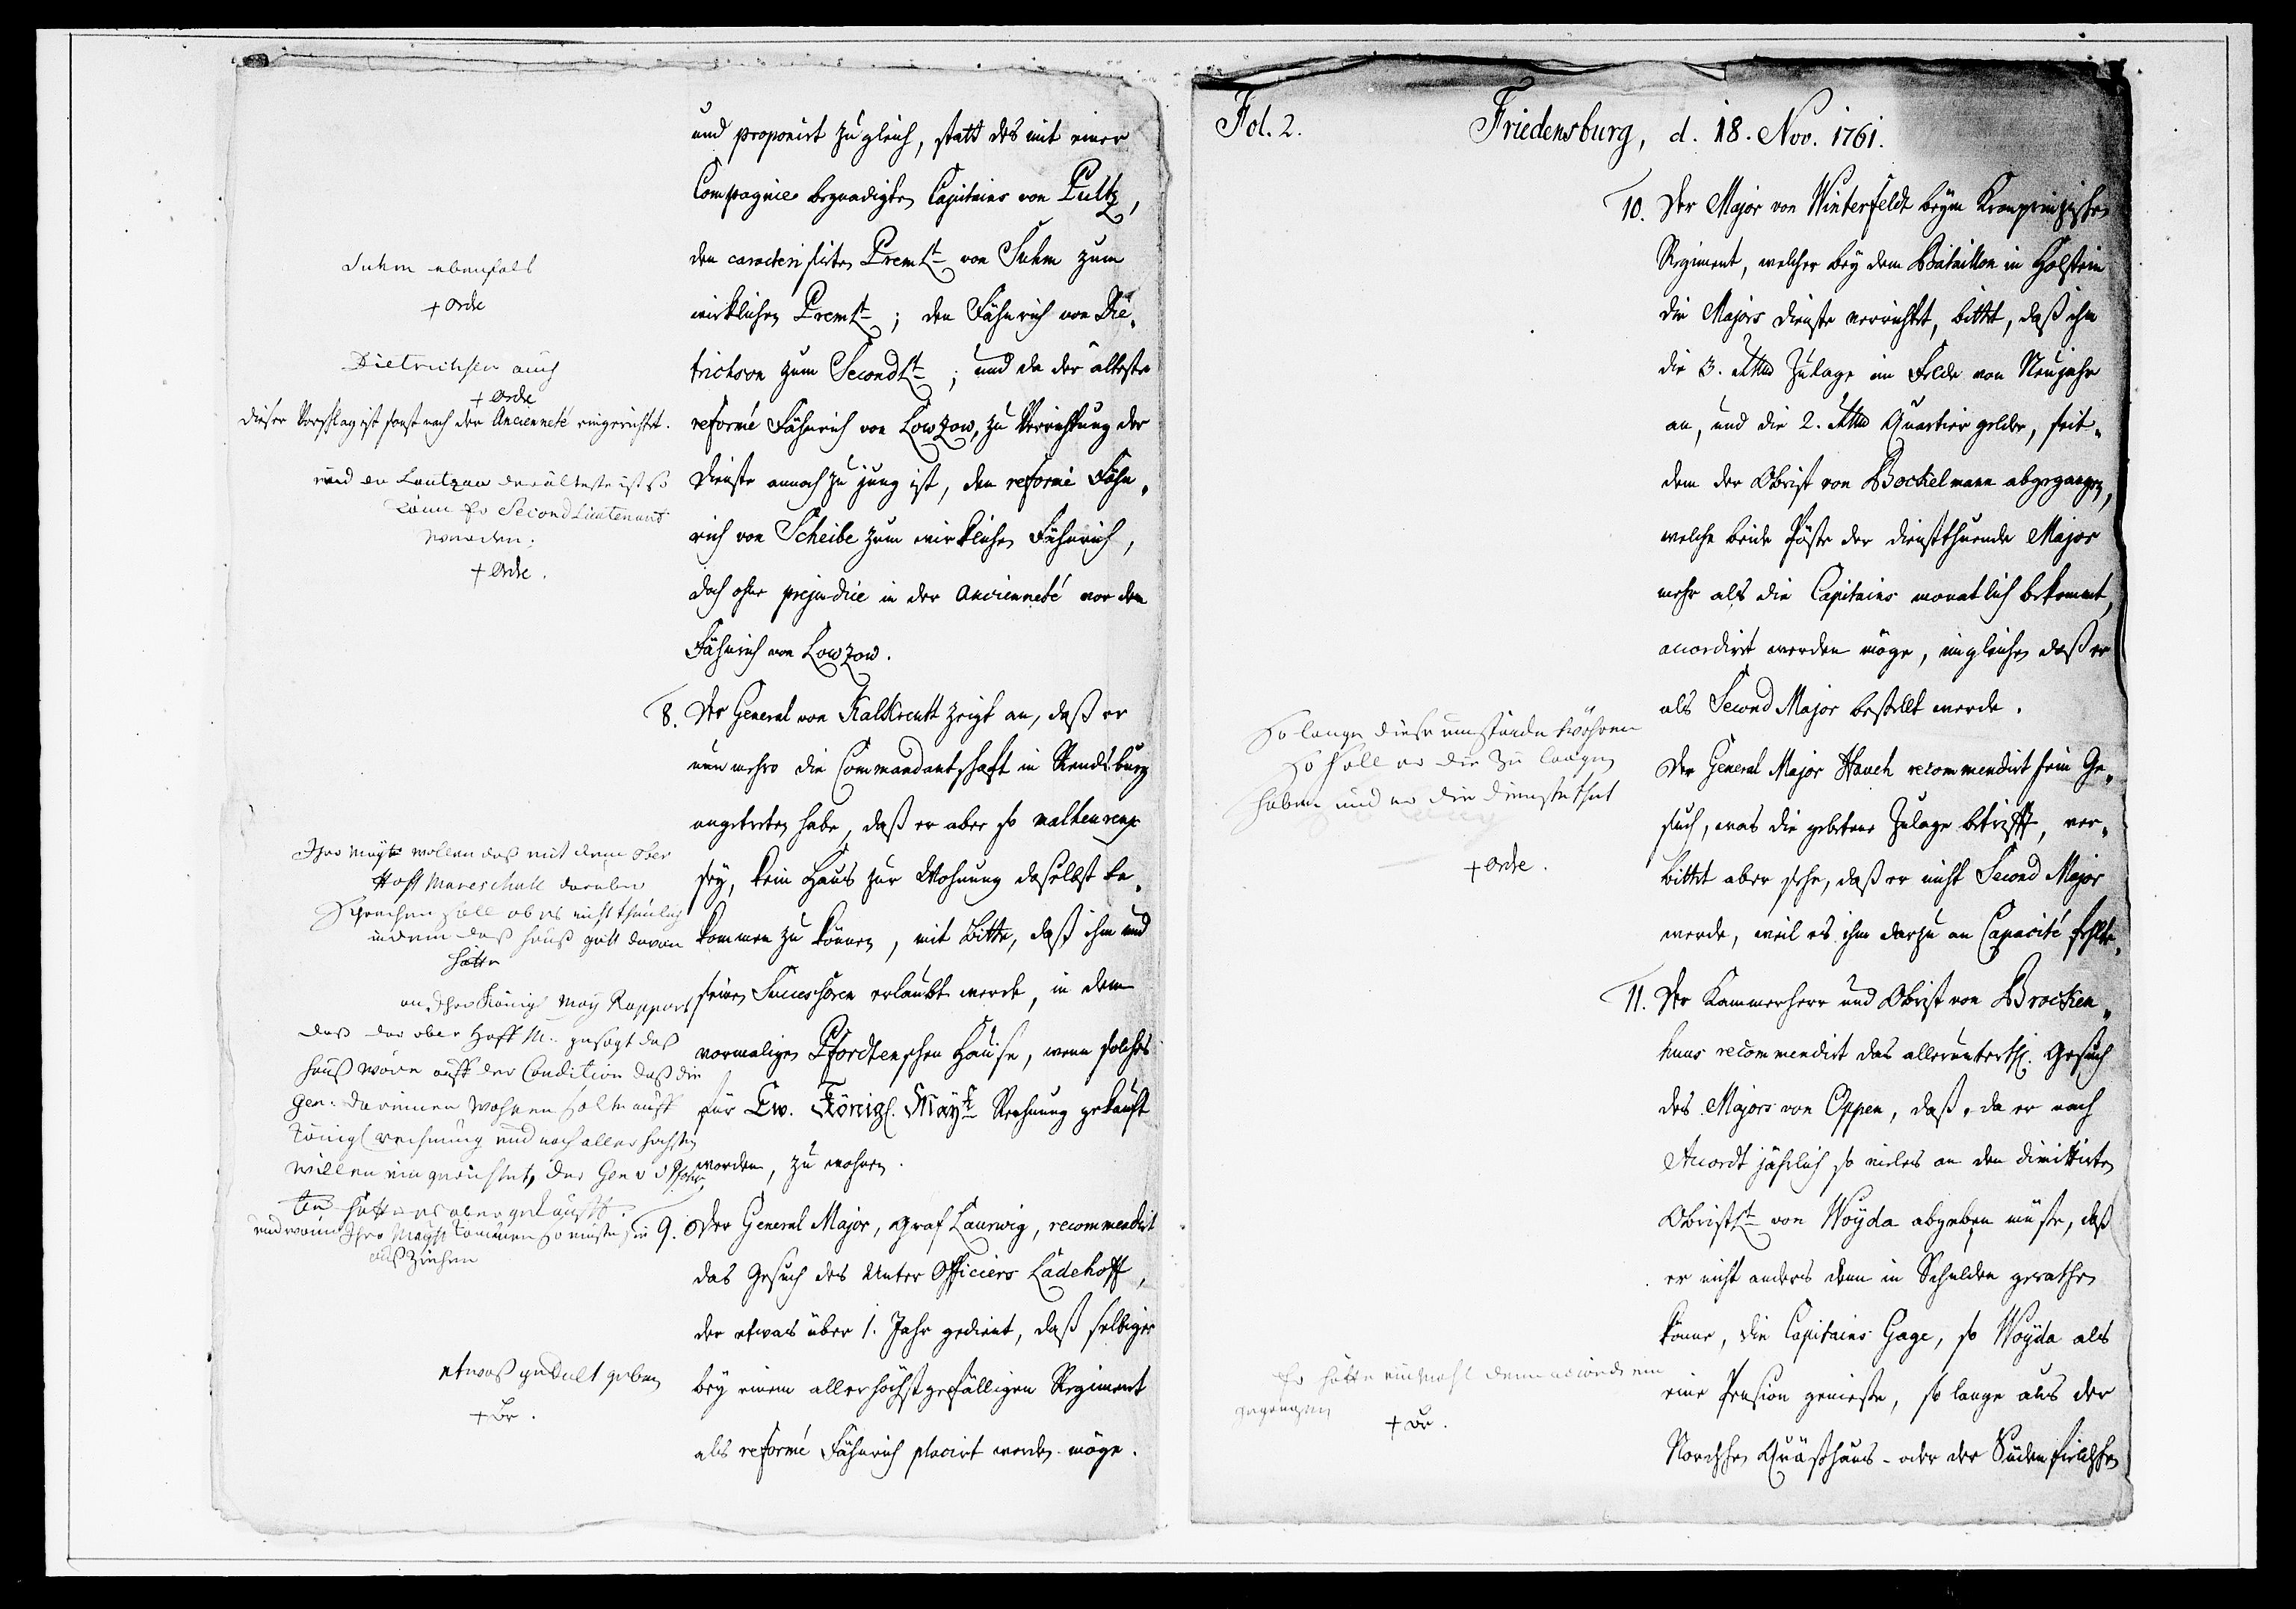 und proponirt zugleich, statt des mit einer
Compagnie begnadigten Capitains von Pultz,
den caracterisirten Premlt. von Suhm zum
wirklichen Premlt.; den Fähnrich von Die„
trichson zum Secondlt.; und da der älteste
reformé Fähnrich von Lowzow, zu Verrichtung der
Dienste annoch zu jung ist, den reformé Fähn„
rich von Scheibe zum wirklichen Fähnrich,
doch ohne prejudice in der Ancienneté vor dem
Fähnrich von Lowzow.
Suhm ebenfals
+ ordre
Dietrichsen auch
+ ordre
dieser Vorschlag ist sonst nach der Ancienneté eingerichtet.
und da Lautzau der älteste ist so
kann Er Second Lieutenant
werden.
+ ordre.
8. Der General von Kalkreutt zeigt an, daß er
nunmehro die Commandantschaft in Rendsburg
angetreten habe, daß er aber so malheureux
sey, kein Haus zur Wohnung daselbst be„
kommen zu können, mit Bitte, daß ihm und
seinen Successoren erlaubt werde, in dem
vormaligen Pfordtenschen Hause, wenn solches
für Ew. Königl. Mayt. Rechnung gekauft
worden, zu wohnen.
Ihro Mayt wollen daß mit dem Ober
Hoff Mareschall darüber
Sprechen soll ob es nicht thunlich
indem daß Hauß
hätte
an Ihro Königl May Rapport
daß der ober Hoff M. gesagt daß
Hauß wäre auff der Condition daß die
Gen. darinnen wohnen solte auff
Königl rechnung und nach allerhöchsten
willen eingerichtet, der Gen v d Pford
ten hätte es aber gekaufft.
und wann Ihro Mayst kommen so müste sie
auß Ziehen
9. Der General Major, Graf Laurwig, recommendirt
das Gesuch des Unter Officiers Ladehoff,
der etwas über 1. Jahr gedient, daß selbiger
bey einem allerhöchstgefälligen Regiment
als reformé Fähnrich placirt werden möge.
etwaß gedult geben
+ Br.
Fol. 2. Friedensburg, d. 18. Nov. 1761.
10. Der Major von Winterfeldt beym Kronprinzischen
Regiment, welcher bey dem Bataillon in Holstein
die Majors Dienste verrichtet, bittet, daß ihm
die 3. Zulage im Felde von Neujahr
an, und die 2. Quartiergelder, seit„
dem der Obrist von Bockelmann abgegangen,
welche beide Poste der dienstthuende Major
mehr als die Capitains monatlich bekommt,
accordirt werden möge, imgleichen daß er
als Second Major bestellt werde.
Der General Major Hauch recommendirt sein Ge„
such, was die gebetene Zulage betrifft, ver„
bittet aber sehr, daß er nicht Second Major
werde, weil es ihm darzu an Capacité fehlte.
So lange diese umstände währen
So soll er die Zulagen
haben und er die dienste thut
+ ordre.
11. Der Kammerherr und Obrist von Brocken„
huus recommendirt das alleruntertl. Gesuch
des Majors von Oppen, daß, da er nach
Accordt jährlich so vieles an den dimittirten
Obristlt. von Woyda abgeben müste, daß
er nicht anders denn in Schulden gerathen
könne, die Capitains Gage, so Woyda als
eine Pension geniesse, so lange aus der
Nordschen Quästhaus- oder der Südenfieldschen
Er hätte einmahl den accord ein
gegangen
+ Br.